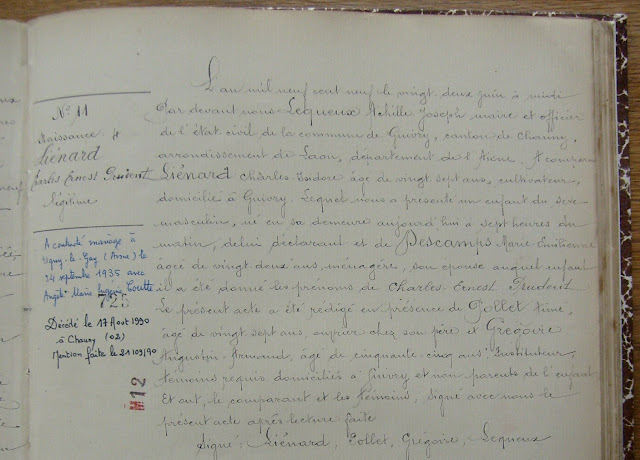 N° 11
Naissance de
Liénard
Charles Ernest Prudent
Légitime
A contracté mariage à
Ugny-le-Gay (Aisne) le
14 septembre 1935 avec
Angèle Marie Eugénie
725
Décédé le 17 Aout 1990
à Chauny (02)
Mention faite le 21/09/90
12
L'an mil neuf cent neuf le vingt-deux juin à midi
Par devant nous Lequeux Achille Joseph maire et officier
de l'état civil de la commune de Guivry, canton de Chauny,
arrondissement de Laon, département de l'Aisne. A comparu
Liénard Charles Isidore âgé de vingt sept ans, cultivateur,
domicilié à Guivry. Lequel nous a présenté un enfant du sexe
masculin, né en sa demeure aujourd'hui à sept heures du
matin, de lui déclarant et de Descamps Marie
âgée de vingt deux ans, ménagère, son épouse auquel enfant
il a été donné les prénoms de Charles Ernest Prudent
Le présent acte a été rédigé en présence de Jollet Aimé,
âgé de vingt sept ans, ouvrier chez son père et Grégoire
Augustin Armand, âgé de cinquante cinq ans Instituteur,
témoins requis domiciliés à Guivry et non parents de l'enfant
Et ont, le comparant et les témoins, signé avec nous le
présent acte après lecture faite
Signé: Liénard, Jollet, Grégoire, Lequeux